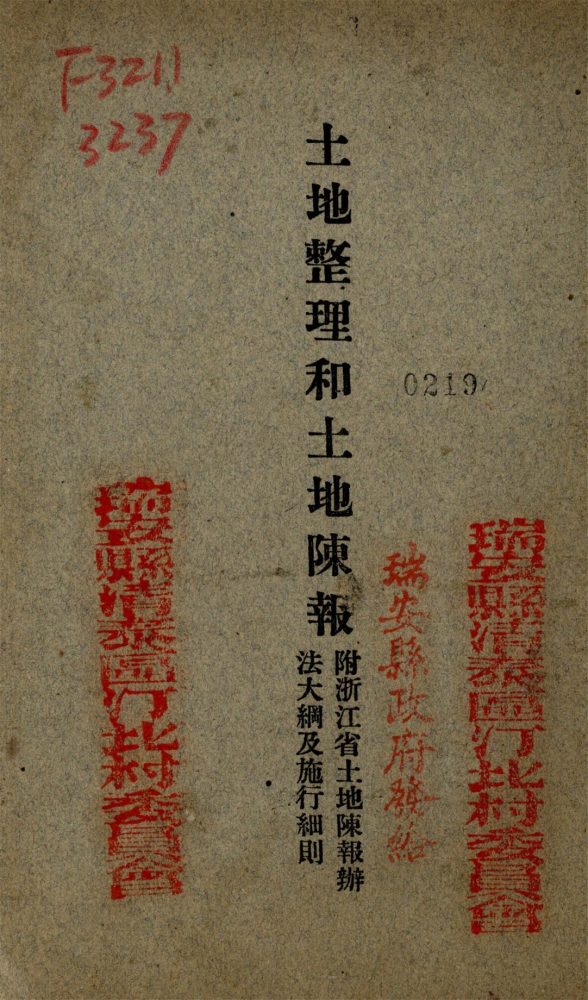 F3211
3237
0219
瑞安縣清泰區汀北村委員會
瑞安縣政府發給
土地整理和土地陳報
附浙江省土地陳報辦
法大綱及施行細則
瑞安縣清泰區汀北村委員會